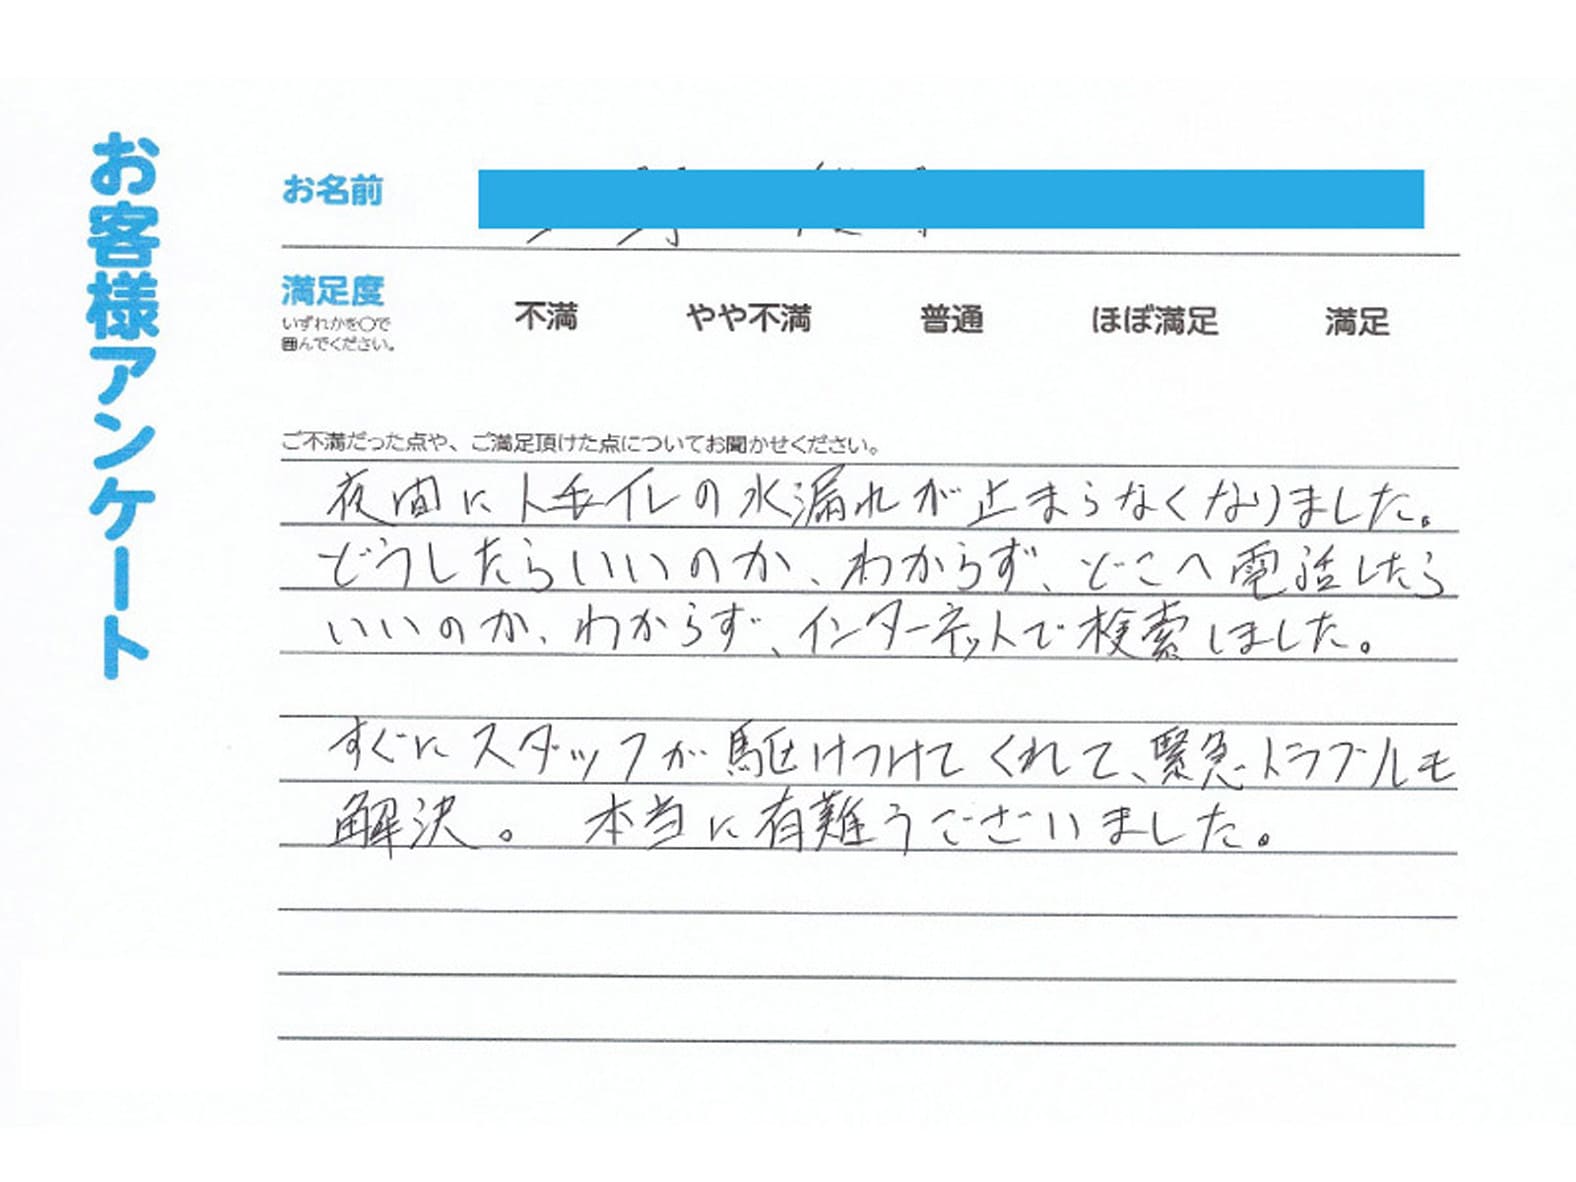 お客様アンケート
お名前
満足度
いずれかを〇で
囲んでください。
不満 やや不満 普通 ほぼ満足 満足
ご不満だった点や、ご満足頂けた点についてお聞かせください。
夜間にトイレの水漏れが止まらなくなりました。
どうしたらいいのか、わからず、どこへ電話したら
いいのか、わからず、インターネットで検索しました。
すぐにスタッフが駆けつけてくれて、緊急トラブルも
解決。 本当に有難うございました。